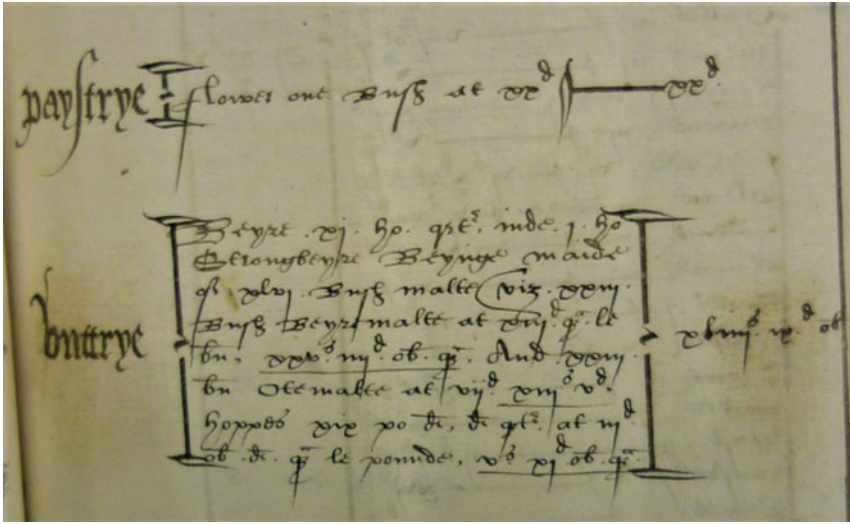 paystrye flower one Bush at xx d xx d.
Beyre .xj. ho. qrt. inde .j. ho
Strongbeyre Beynge maide
of xlvj. Bush malte (viz. xxiij.
buttrye
Bush Beyremalte at xiij d. q a. le
bu. xxv s. iiij d. ob. q a. And xxiij. xliiij s. ix. d ob
bu Otemalte at vij d xiij s v d.
hoppes xix po di, di qrt. at iij d
ob. di. q a le pounde, v s. xj d. ob. q a.